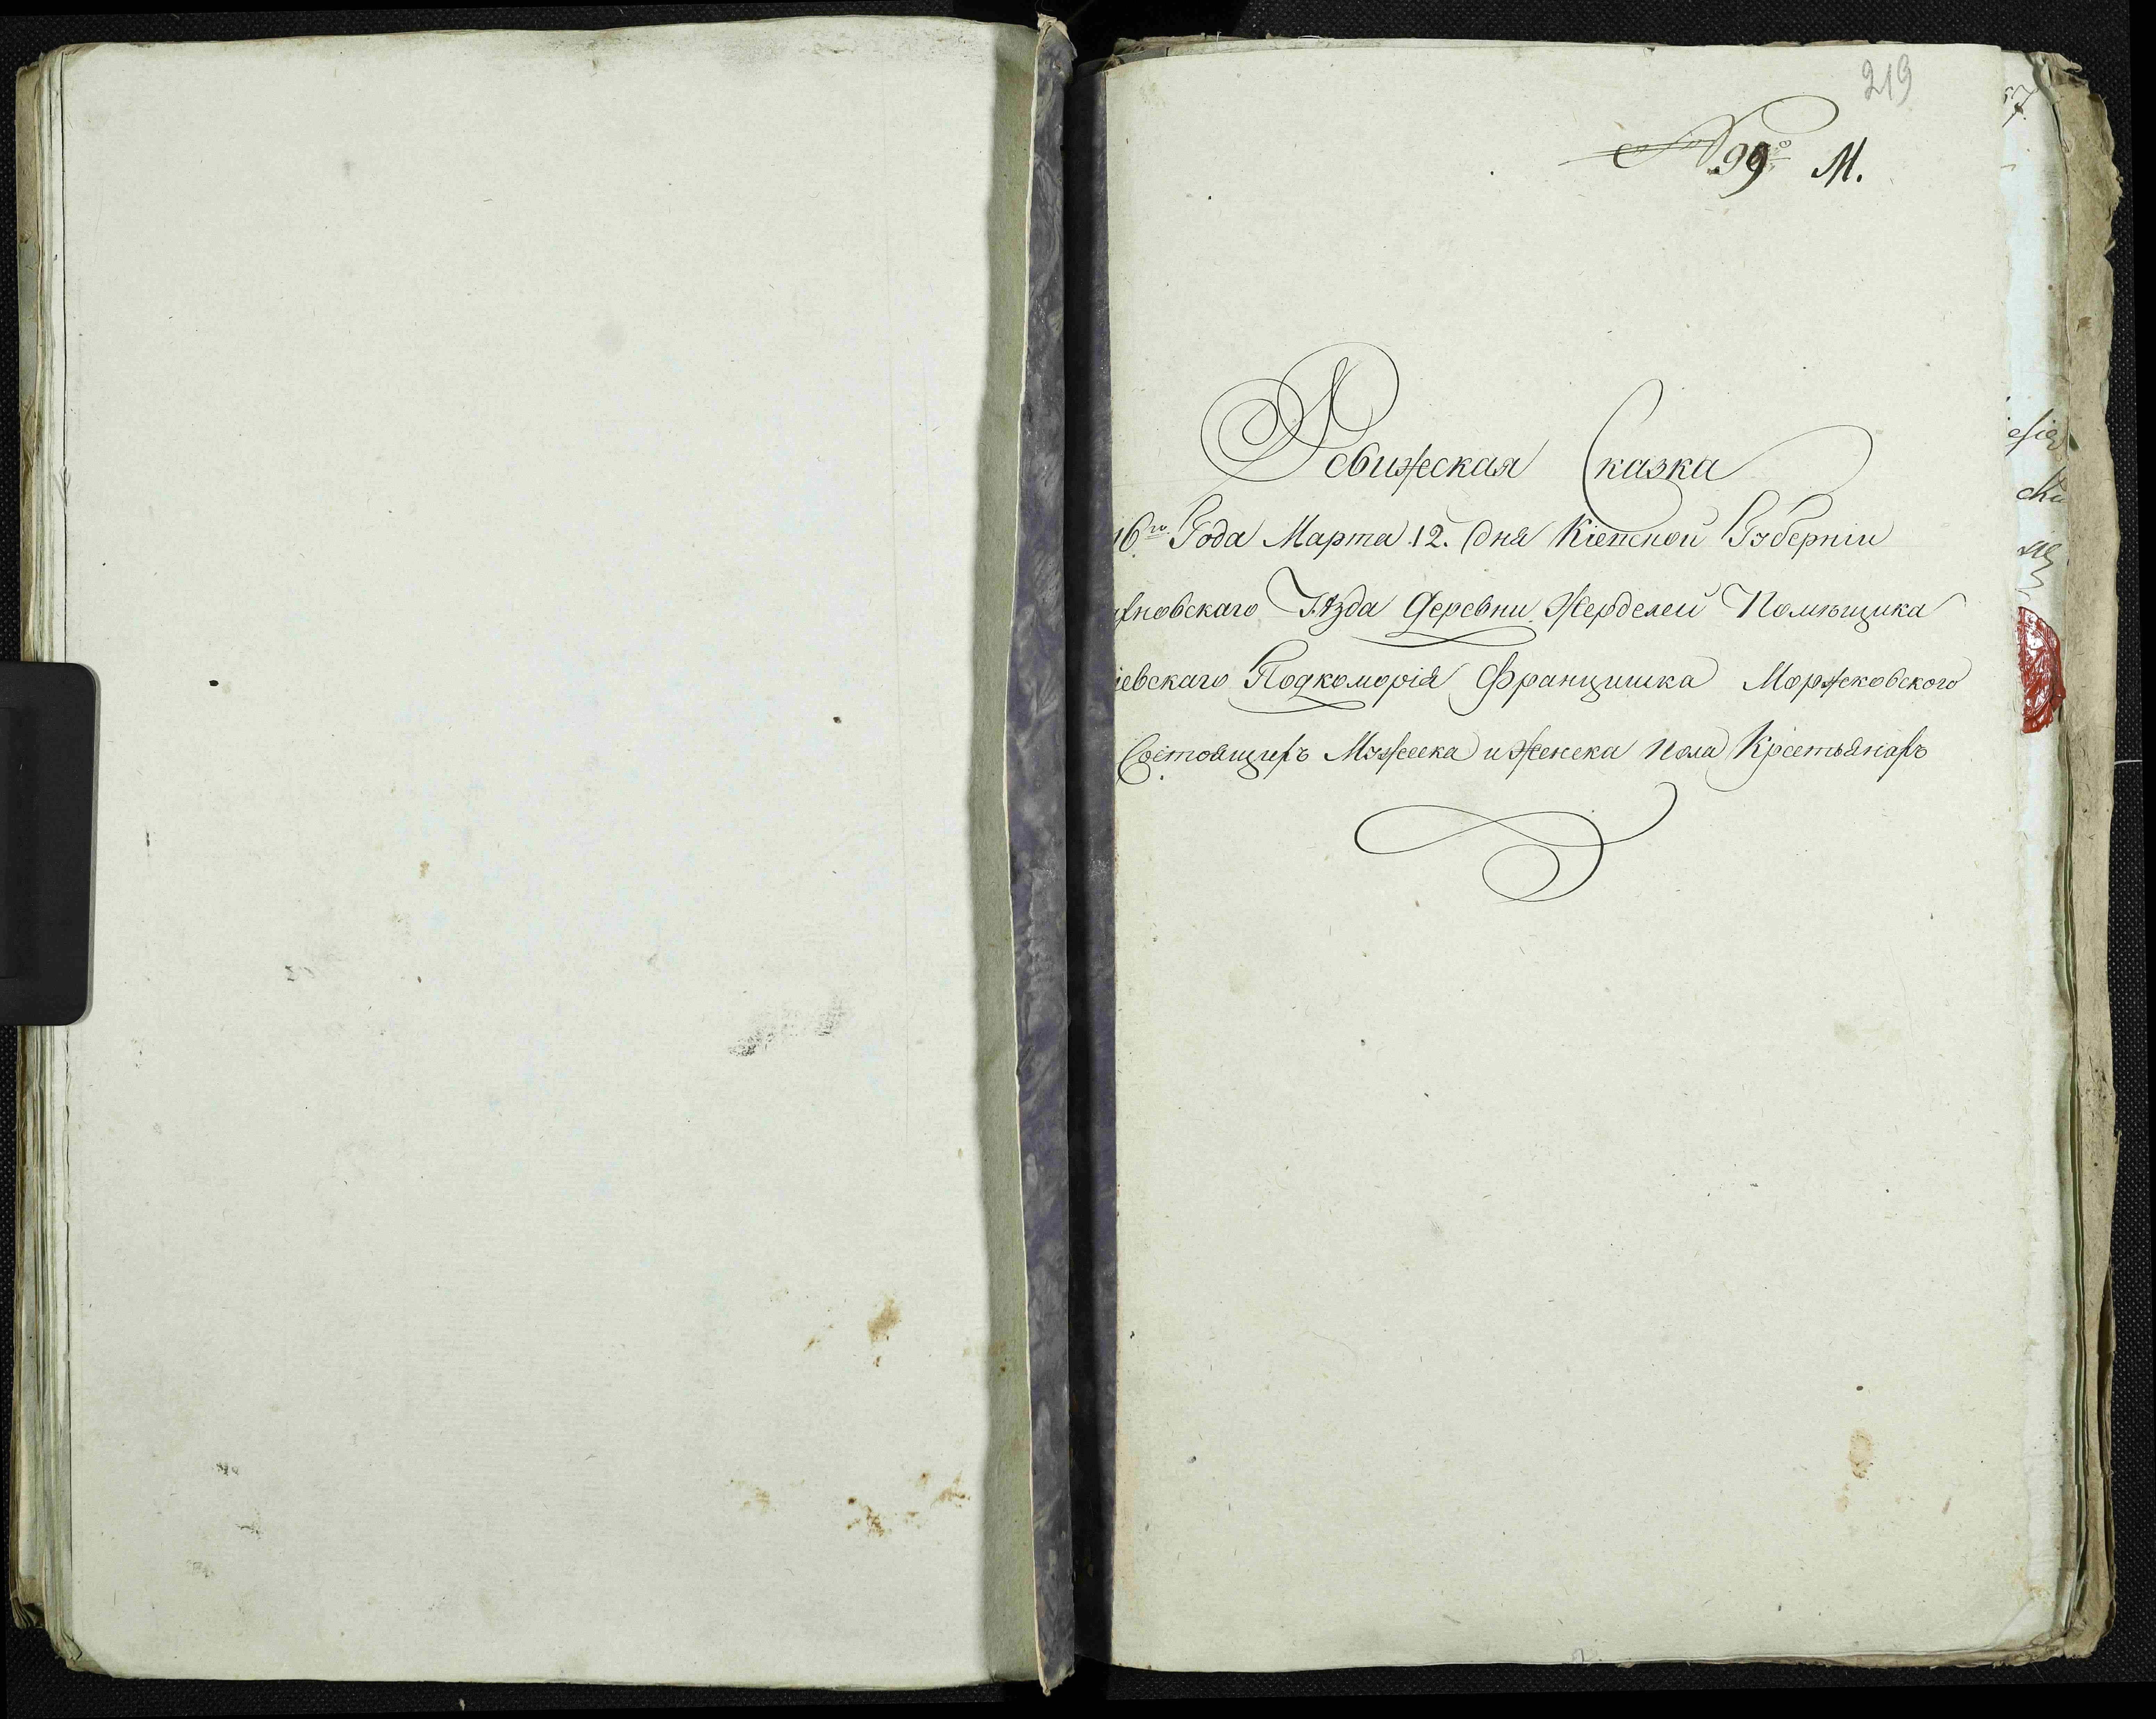 219
№ 99º М.
Ревижская Сказка
16го Года Марта 12. дня Кіевской Губерніи
хновскаго Уѣзда Деревни Жерделей Помѣщика
іевскаго Подкоморія Францишка Моржковского
Состоящихъ Мужеска и Женска пола Крестьянахъ